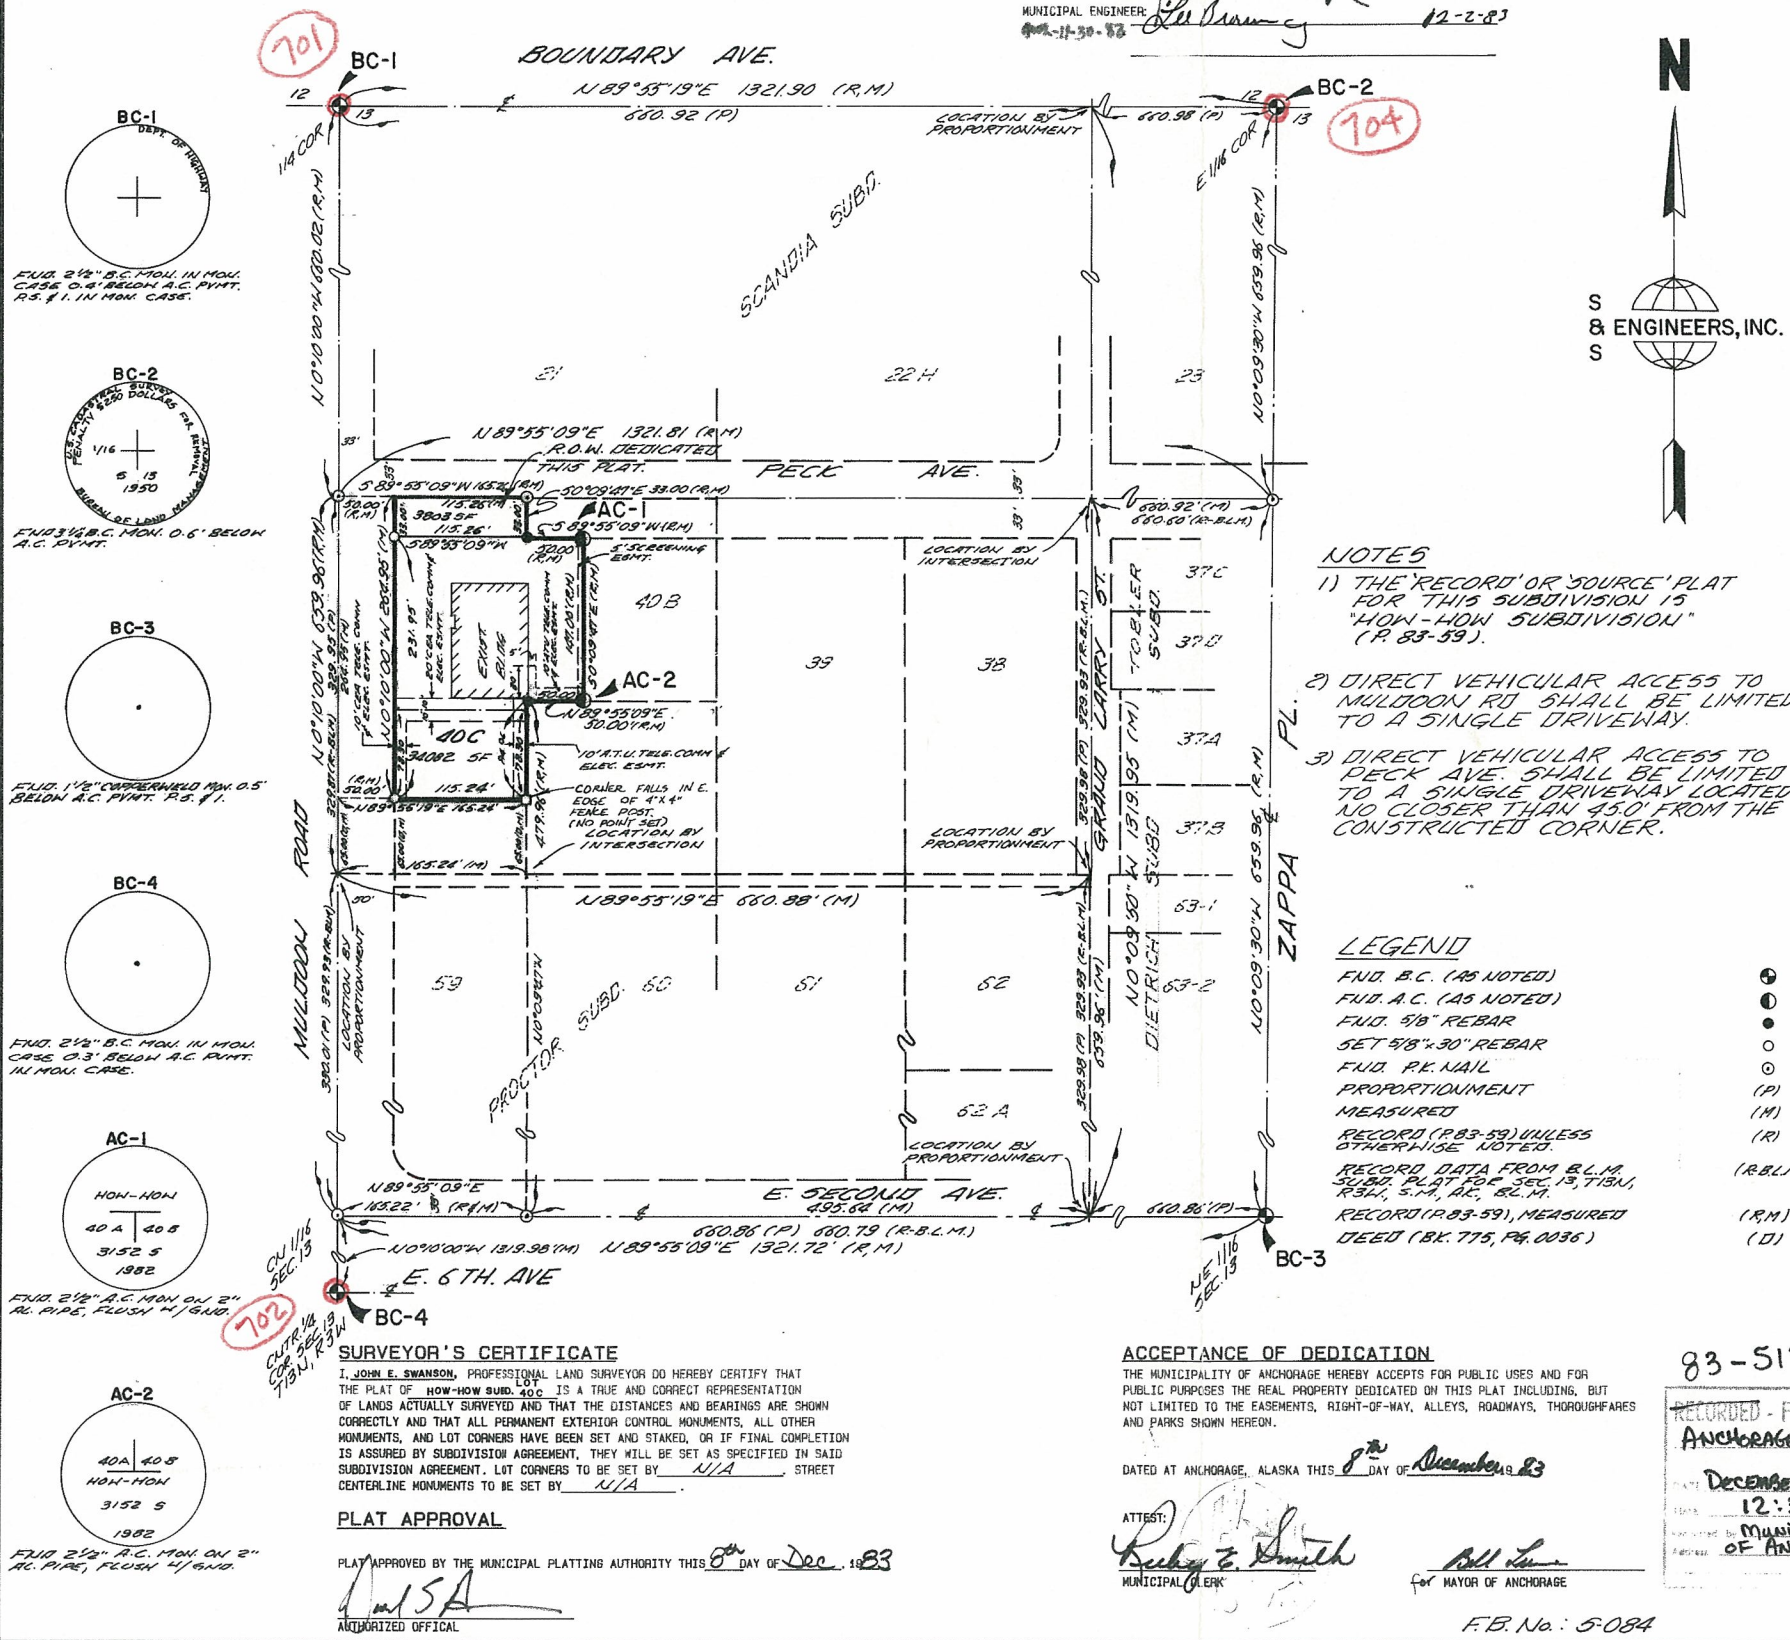 MUNICIPAL ENGINEER:
12-2-83
701
BC-1
BOUNDARY AVE.
N 89°55'19"E 1321.90 (R,M)
660.92 (P)
LOCATION BY
PROPORTIONMENT
660.98 (P)
BC-2
704
12
13
12
13
1/4 COR
E 1/16 COR
N
BC-1
DEPT. OF HIGHWAY
FND. 2 1/2" B.C. MON. IN MON.
CASE 0.4' BELOW A.C. PVMT.
P.S. & I. IN MON. CASE.
BC-2
U.S. CADASTRAL SURVEY
PENALTY $250 DOLLARS FOR REMOVAL
1/16
S 13
1950
BUREAU OF LAND MANAGEMENT
FND 3 1/4 B.C. MON. 0.6' BELOW
A.C. PVMT.
BC-3
FND. 1 1/2" COPPERWELD MON. 0.5'
BELOW A.C. PVMT. P.S. & I.
BC-4
FND. 2 1/2" B.C. MON. IN MON.
CASE 0.3' BELOW A.C. PVMT.
IN MON. CASE.
AC-1
HOW-HOW
40 A 40 B
3152 S
1982
FND. 2 1/2" A.C. MON ON 2"
AL. PIPE, FLUSH W/GND.
AC-2
40A 40B
HOW-HOW
3152 S
1982
FND 2 1/2" A.C. MON. ON 2"
AL. PIPE, FLUSH W/GND.
N0°10'00"W 660.02 (R,M)
SCANDIA SUBD.
N0°09'30"W 659.96 (R,M)
21
22H
23
33'
N 89°55'09"E 1321.81 (R,M)
R.O.W. DEDICATED
THIS PLAT.
PECK AVE.
S 89°55'09"W 165.26 (R,M)
S0°09'47"E 33.00 (R,M)
50.00'
(R,M)
115.26 (M)
3803 SF
115.26'
S89°55'09"W
AC-1
S 89°55'09"W (R,M)
50.00
(R,M)
5' SCREENING
ESMT.
33'
33'
660.92' (M)
660.60' (R-BLM)
LOCATION BY
INTERSECTION
N0°10'00"W 659.96 (R,M)
N0°10'00"W 264.95' (M)
231.95'
EXIST
BLDG
S0°09'47"E (R,M)
40B
39
38
37C
37D
37A
37B
TOBLER
SUBD.
GRAND LARRY ST.
AC-2
N89°55'09"E
50.00' (R,M)
40C
34082 SF
10' A.T.U. TELE. COMM &
ELEC. ESMT.
CORNER FALLS IN E.
EDGE OF 4"X4"
FENCE POST.
(NO POINT SET)
LOCATION BY
INTERSECTION
(R,M)
50.00'
115.24'
N89°55'19"E 165.24'
165.24' (M)
479.96 (R,M)
LOCATION BY
PROPORTIONMENT
N89°55'19"E 660.88' (M)
50'
MULDOON ROAD
LOCATION BY
PROPORTIONMENT
330.01 (P) 329.93 (R-BLM)
59
60
61
62
63-1
63-2
62 A
PROCTOR SUBD.
N0°09'50"W 1319.95 (M)
DIETRICH SUBD
659.96' (M)
N0°09'30"W 659.86 (R,M)
ZAPPA PL.
LOCATION BY
PROPORTIONMENT
N89°55'09"E
165.22' (R&M)
E. SECOND AVE.
495.64 (M)
660.86 (P) 660.79 (R-B.L.M.)
660.86' (P)
N0°10'00"W 1319.98' (M) N 89°55'09"E 1321.72' (R,M)
E. 6TH. AVE
BC-3
NE 1/16
SEC. 13
CN 1/16
SEC. 13
702
BC-4
CNTR. 1/4
COR. SEC. 13
T13N, R3W
S
& ENGINEERS, INC.
S
NOTES
1) THE 'RECORD' OR 'SOURCE' PLAT
FOR THIS SUBDIVISION IS
"HOW-HOW SUBDIVISION"
(P. 83-59).
2) DIRECT VEHICULAR ACCESS TO
MULDOON RD SHALL BE LIMITED
TO A SINGLE DRIVEWAY.
3) DIRECT VEHICULAR ACCESS TO
PECK AVE. SHALL BE LIMITED
TO A SINGLE DRIVEWAY LOCATED
NO CLOSER THAN 45.0' FROM THE
CONSTRUCTED CORNER.
LEGEND
FND. B.C. (AS NOTED)
FND. A.C. (AS NOTED)
FND. 5/8" REBAR
SET 5/8"x30" REBAR
FND. P.K. NAIL
PROPORTIONMENT (P)
MEASURED (M)
RECORD (P.83-59) UNLESS
OTHERWISE NOTED. (R)
RECORD DATA FROM B.L.M.
SUBD. PLAT FOR SEC. 13, T13N,
R3W, S.M., AK, B.L.M.
RECORD (P.83-59), MEASURED (R,M)
DEED (BK. 775, PG. 0036) (D)
SURVEYOR'S CERTIFICATE
I, JOHN E. SWANSON, PROFESSIONAL LAND SURVEYOR DO HEREBY CERTIFY THAT
THE PLAT OF HOW-HOW SUBD. LOT 40C IS A TRUE AND CORRECT REPRESENTATION
OF LANDS ACTUALLY SURVEYED AND THAT THE DISTANCES AND BEARINGS ARE SHOWN
CORRECTLY AND THAT ALL PERMANENT EXTERIOR CONTROL MONUMENTS, ALL OTHER
MONUMENTS, AND LOT CORNERS HAVE BEEN SET AND STAKED, OR IF FINAL COMPLETION
IS ASSURED BY SUBDIVISION AGREEMENT, THEY WILL BE SET AS SPECIFIED IN SAID
SUBDIVISION AGREEMENT. LOT CORNERS TO BE SET BY N/A. STREET
CENTERLINE MONUMENTS TO BE SET BY N/A.
PLAT APPROVAL
PLAT APPROVED BY THE MUNICIPAL PLATTING AUTHORITY THIS 8th DAY OF Dec. 1983
AUTHORIZED OFFICAL
ACCEPTANCE OF DEDICATION
THE MUNICIPALITY OF ANCHORAGE HEREBY ACCEPTS FOR PUBLIC USES AND FOR
PUBLIC PURPOSES THE REAL PROPERTY DEDICATED ON THIS PLAT INCLUDING, BUT
NOT LIMITED TO THE EASEMENTS, RIGHT-OF-WAY, ALLEYS, ROADWAYS, THOROUGHFARES
AND PARKS SHOWN HEREON.
DATED AT ANCHORAGE, ALASKA THIS 8th DAY OF December 83
ATTEST:
Ruby E. Smith
MUNICIPAL CLERK
for MAYOR OF ANCHORAGE
83-51
RECORDED - F
ANCHORAGE
DECEMBE
12:
MUNI
OF AN
F.B. No.: S-084